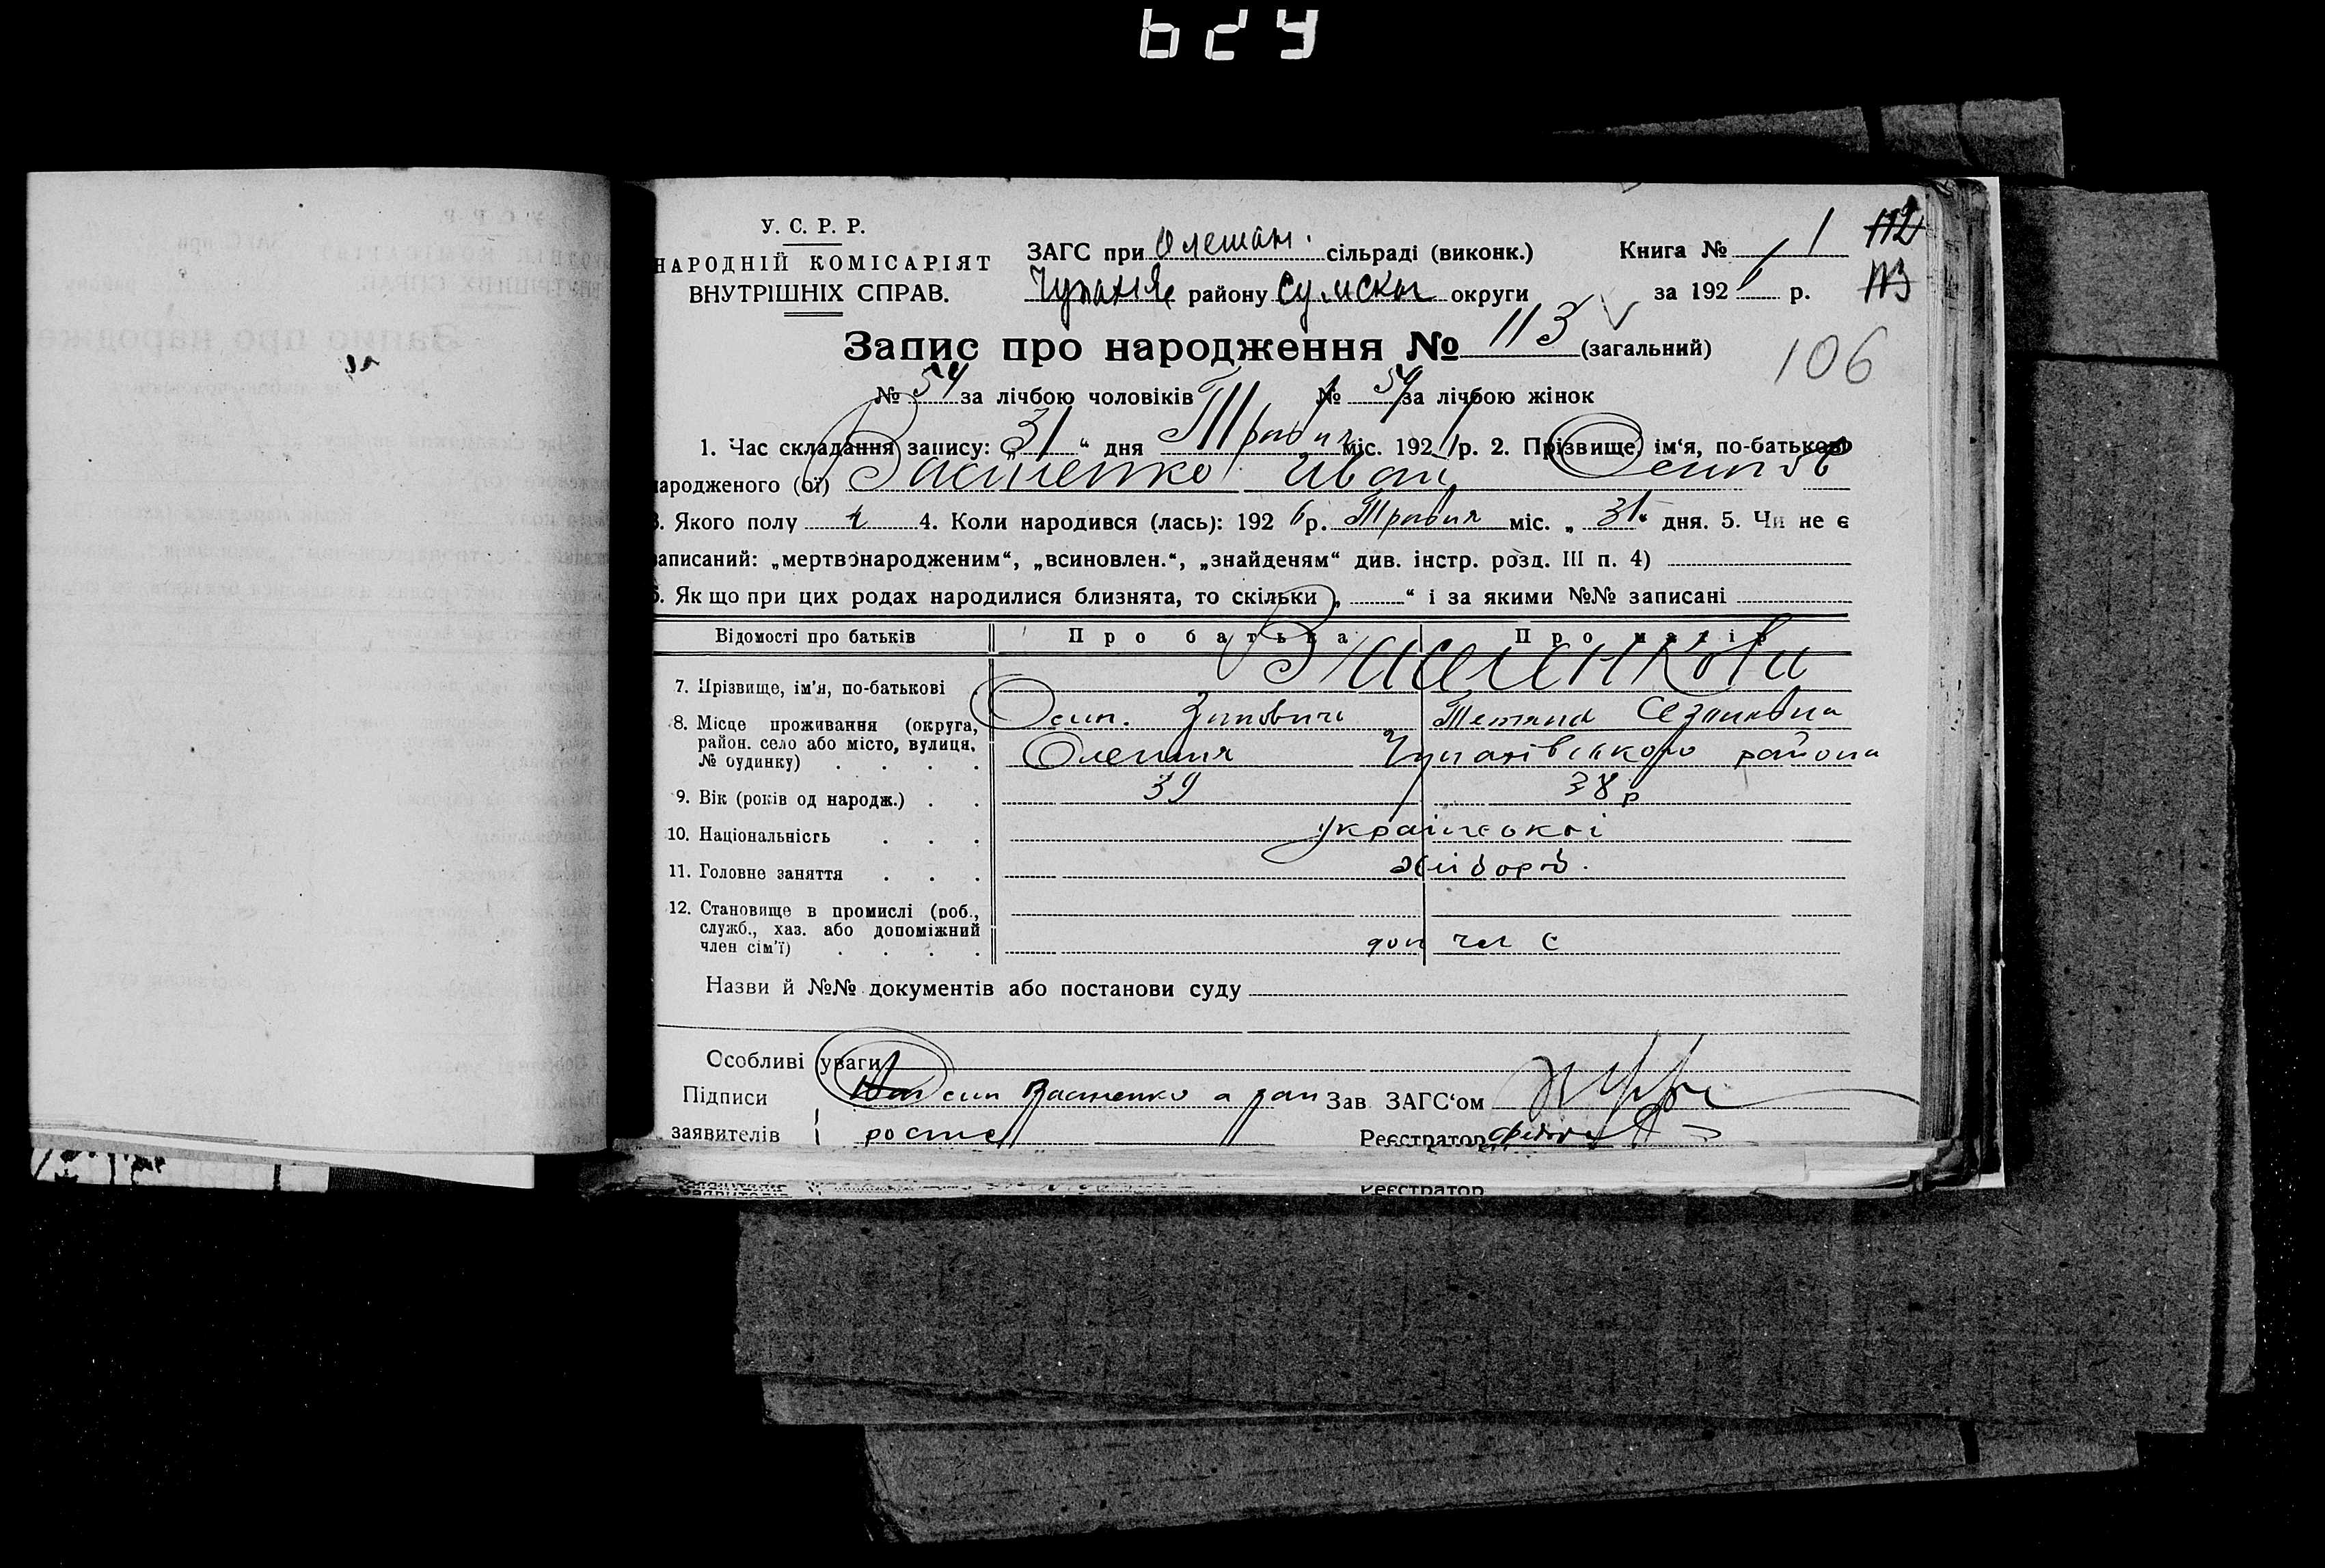 624
У. С. Р. Р.
НАРОДНІЙ КОМІСАРІЯТ
ВНУТРІШНІХ СПРАВ.
ЗАГС при Олешан. сільраді (виконк.)
району Сумскы округи
Книга № 1
за 1926 р.
112
113
Запис про народження № 113 (загальний)
106
№ 54 за лічбою чоловіків № 59 за лічбою жінок
1. Час складання запису: „31“ дня Травня міс. 1926 р. 2. Прізвище, ім‘я, по-батькові
народженого (ої) Василенко Иван Осипов
3. Якого полу ч 4. Коли народився (лась): 1926 р. Травня міс. „31“ дня. 5. Чи не є
записаний: „мертвонародженим“, „всиновлен.“, „знайденям“ див. інстр. розд. III п. 4)
6. Якщо при цих родах народилися близнята, то скільки „ “ і за якими №№ записані
Відомості про батьків Про батька Про матір
7. Прізвище, ім‘я, по-батькові
8. Місце проживання (округа, район. село або місто, вулиця, № будинку)
Осип. Тетяна
Олешня Чупахівського района
9. Вік (років од народж.) 39 38 р
10. Національність української
11. Головне заняття хлібороб.
12. Становище в промислі (роб., служб., хаз. або допоміжний член сім‘ї) доп чл с
Назви й №№ документів або постанови суду
Особливі уваги
Підписи Зав ЗАГС‘ом
заявителів Реєстратор
Реєстратор